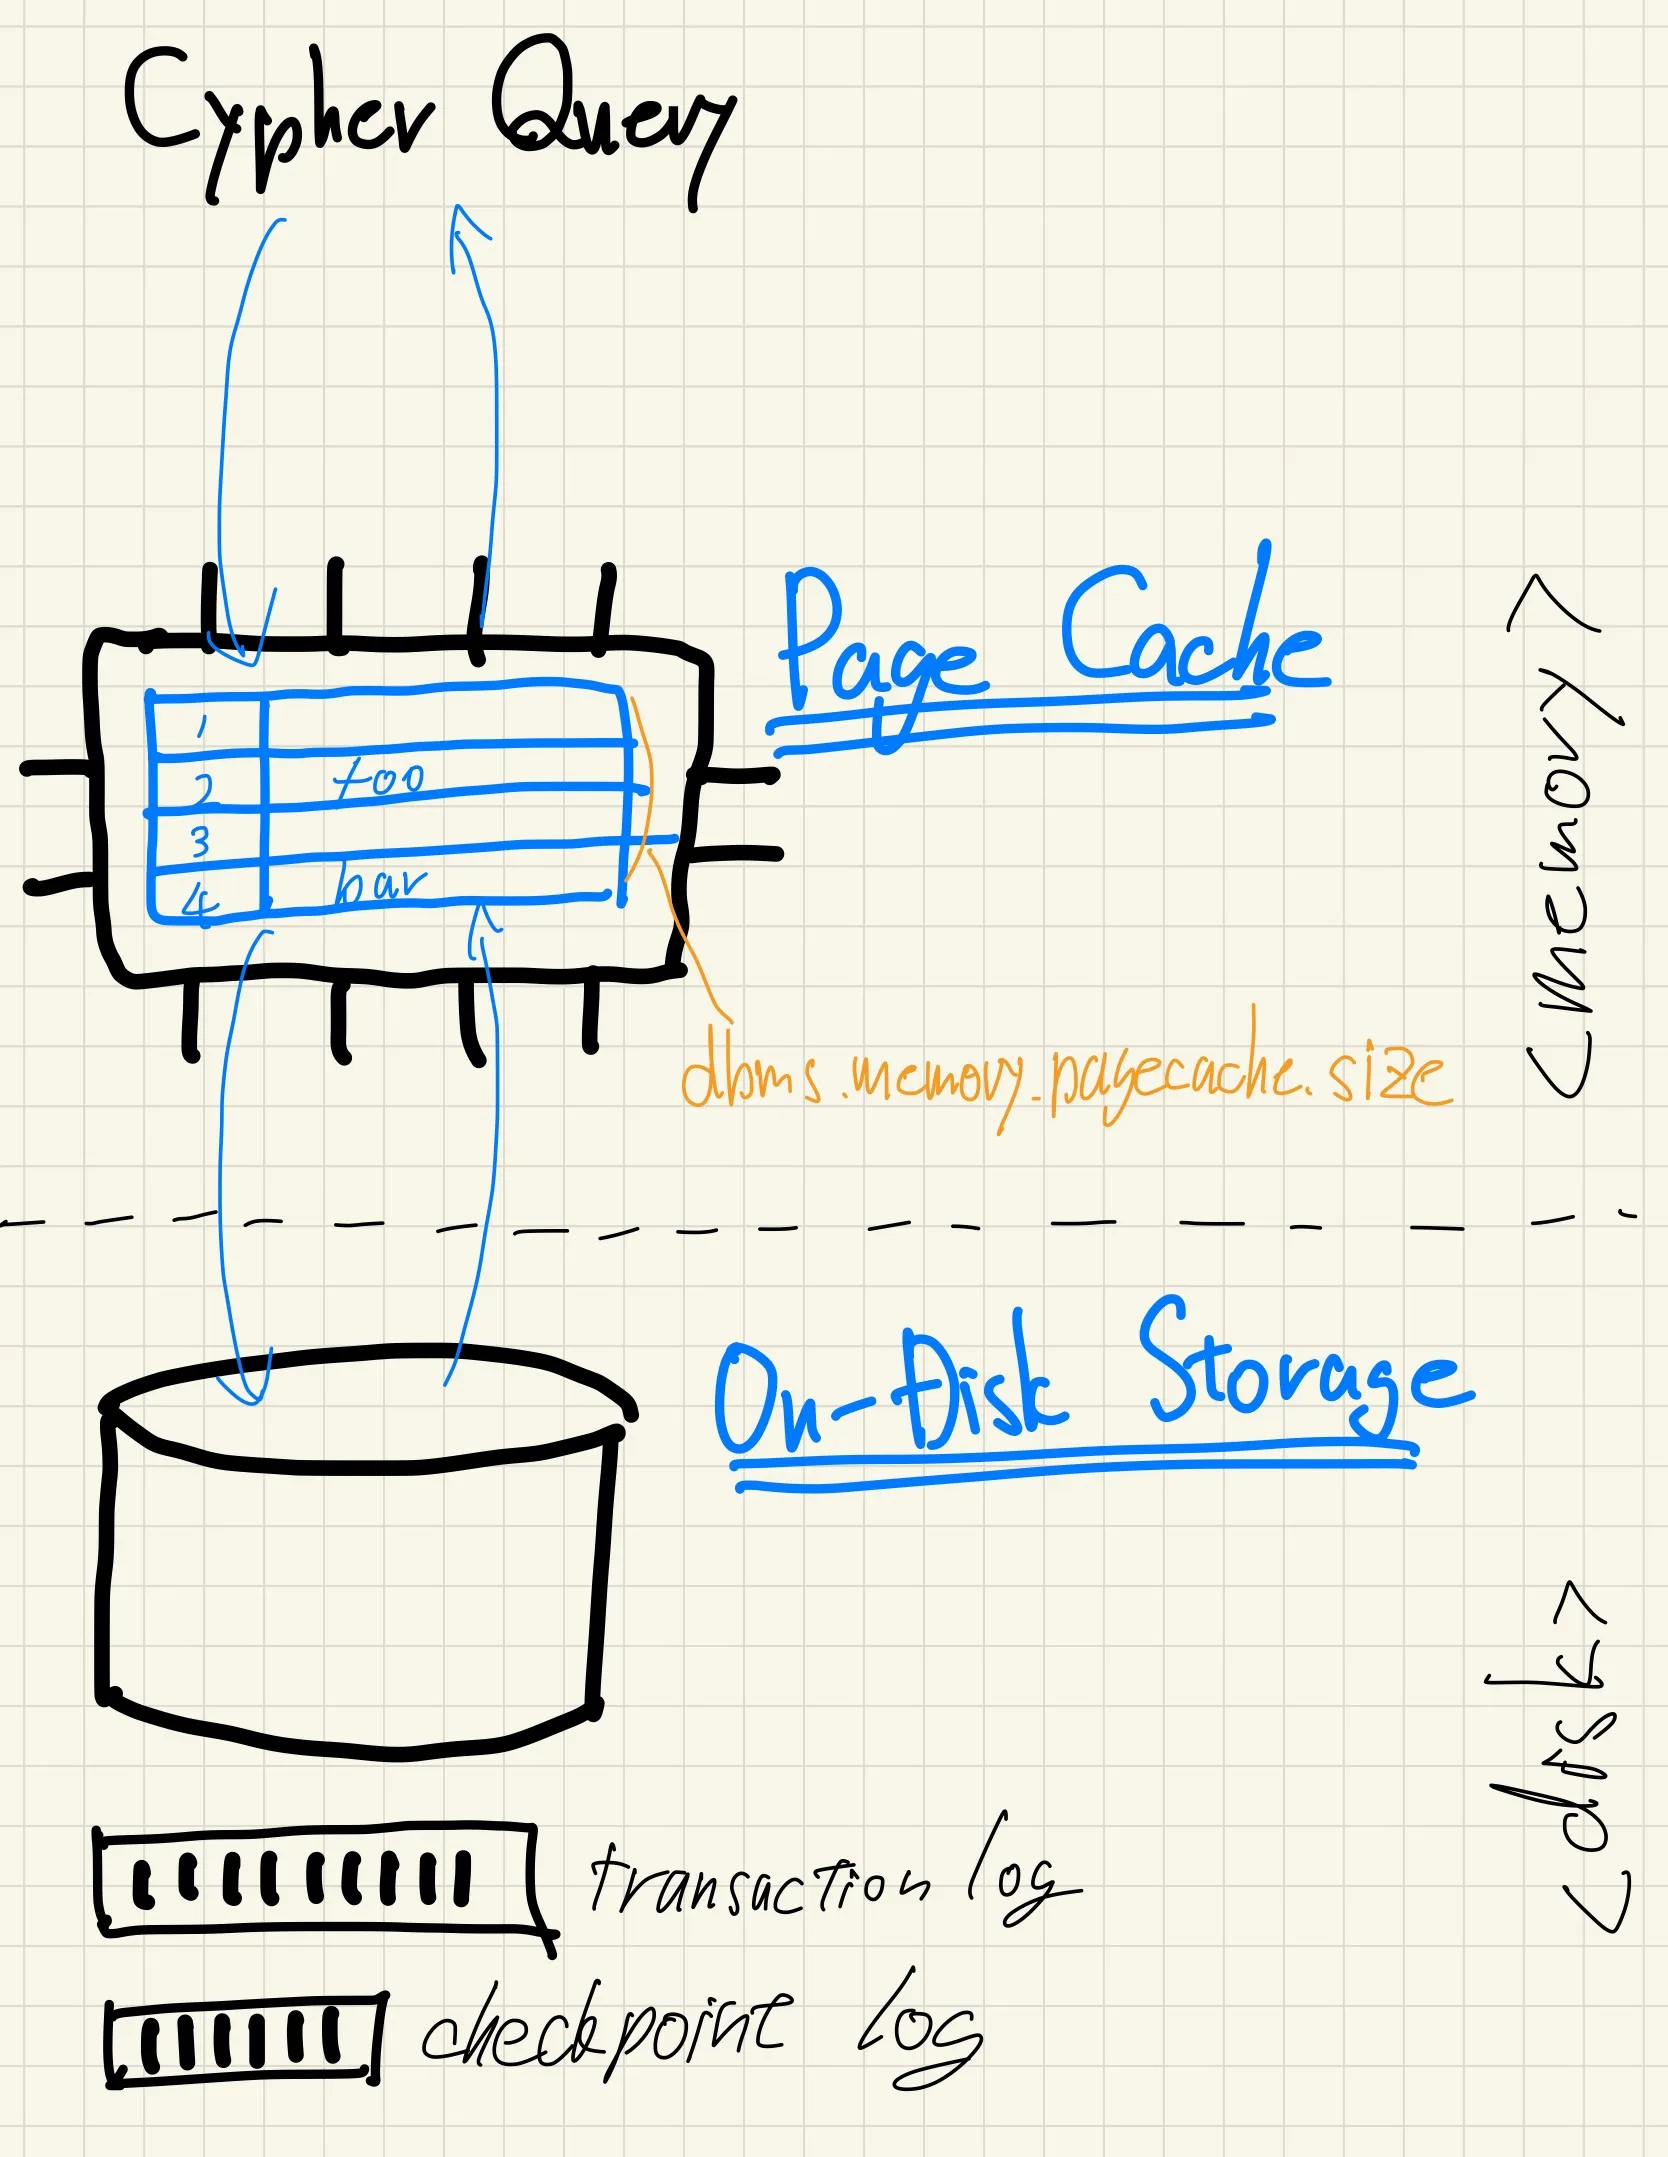 Cypher Query
Page Cache
1
2 foo
3
4 bar
dbms.memory.pagecache.size
<memory>
On-Disk Storage
<disk>
transaction log
checkpoint log